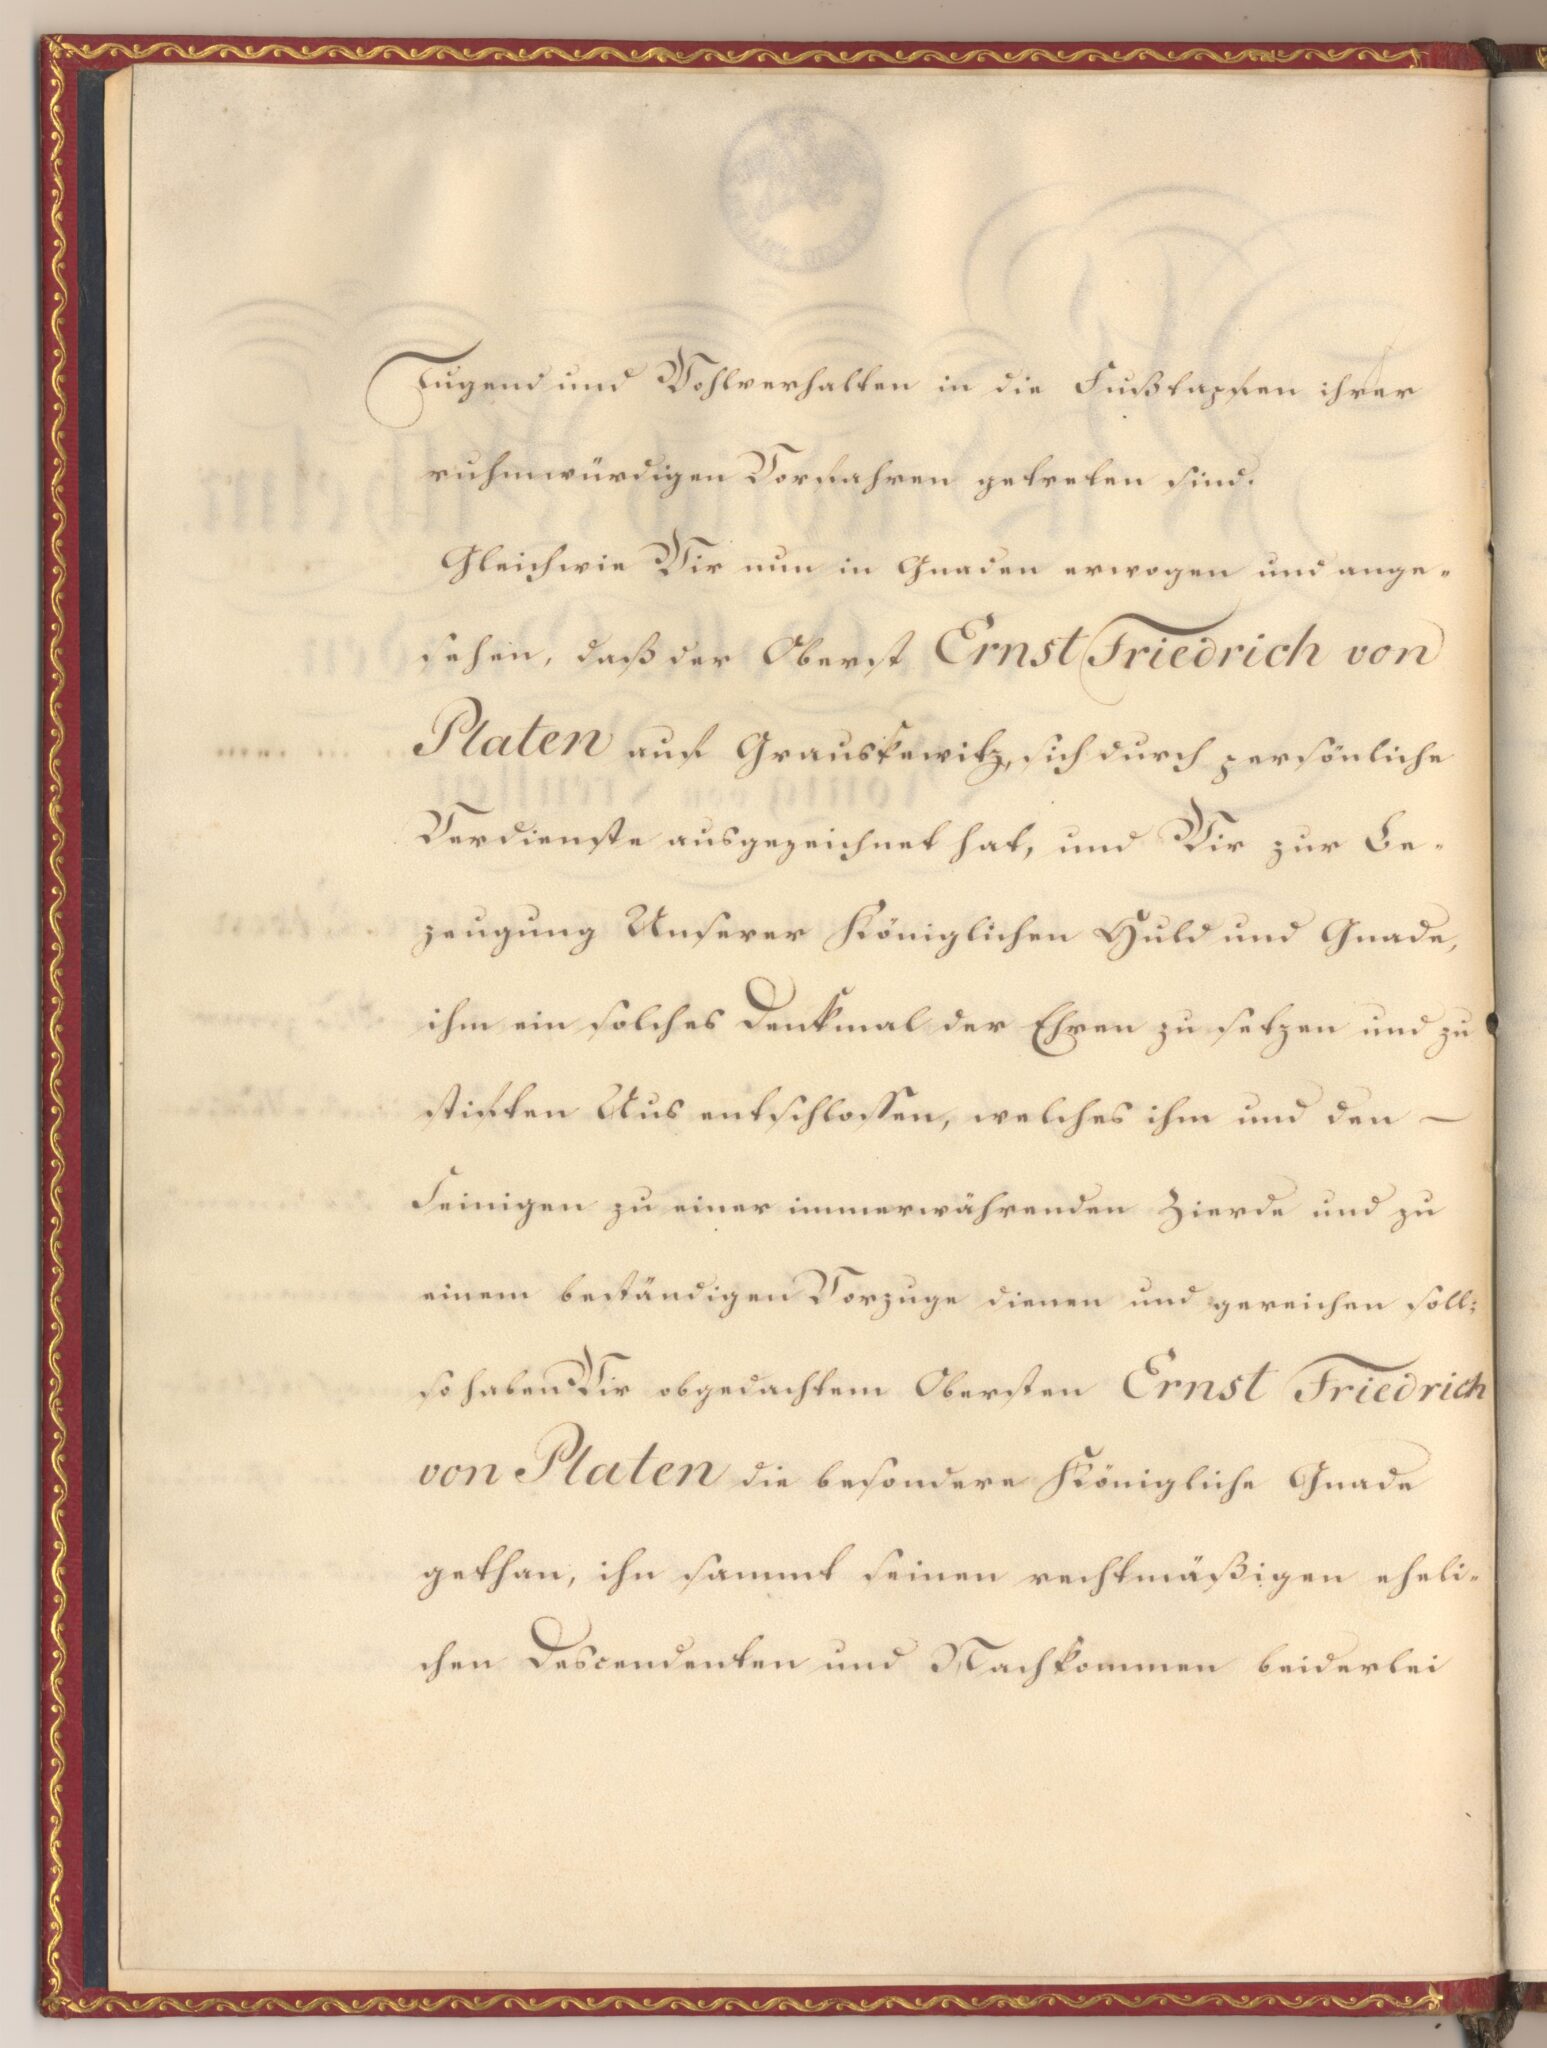 Tugend und Wohlverhalten in die Fußtapfen ihrer
ruhmwürdigen Vorfahren getreten sind.
Gleichwie Wir nun in Gnaden erwogen und ange-
sehen, daß der Oberst Ernst Friedrich von
Platen auf Grauskewitz, sich durch persönliche
Verdienste ausgezeichnet hat, und Wir zur Be-
zeugung Unserer Königlichen Huld und Gnade,
ihm ein solches Denkmal der Ehren zu setzen und zu
stiften Uns entschlossen, welches ihm und den –
Seinigen zu einer immerwährenden Zierde und zu
einem beständigen Vorzuge dienen und gereichen soll;
so haben Wir obgedachtem Obersten Ernst Friedrich
von Platen die besondere Königliche Gnade
gethan, ihn sammt seinen rechtmäßigen eheli-
chen Descendenten und Nachkommen beiderlei